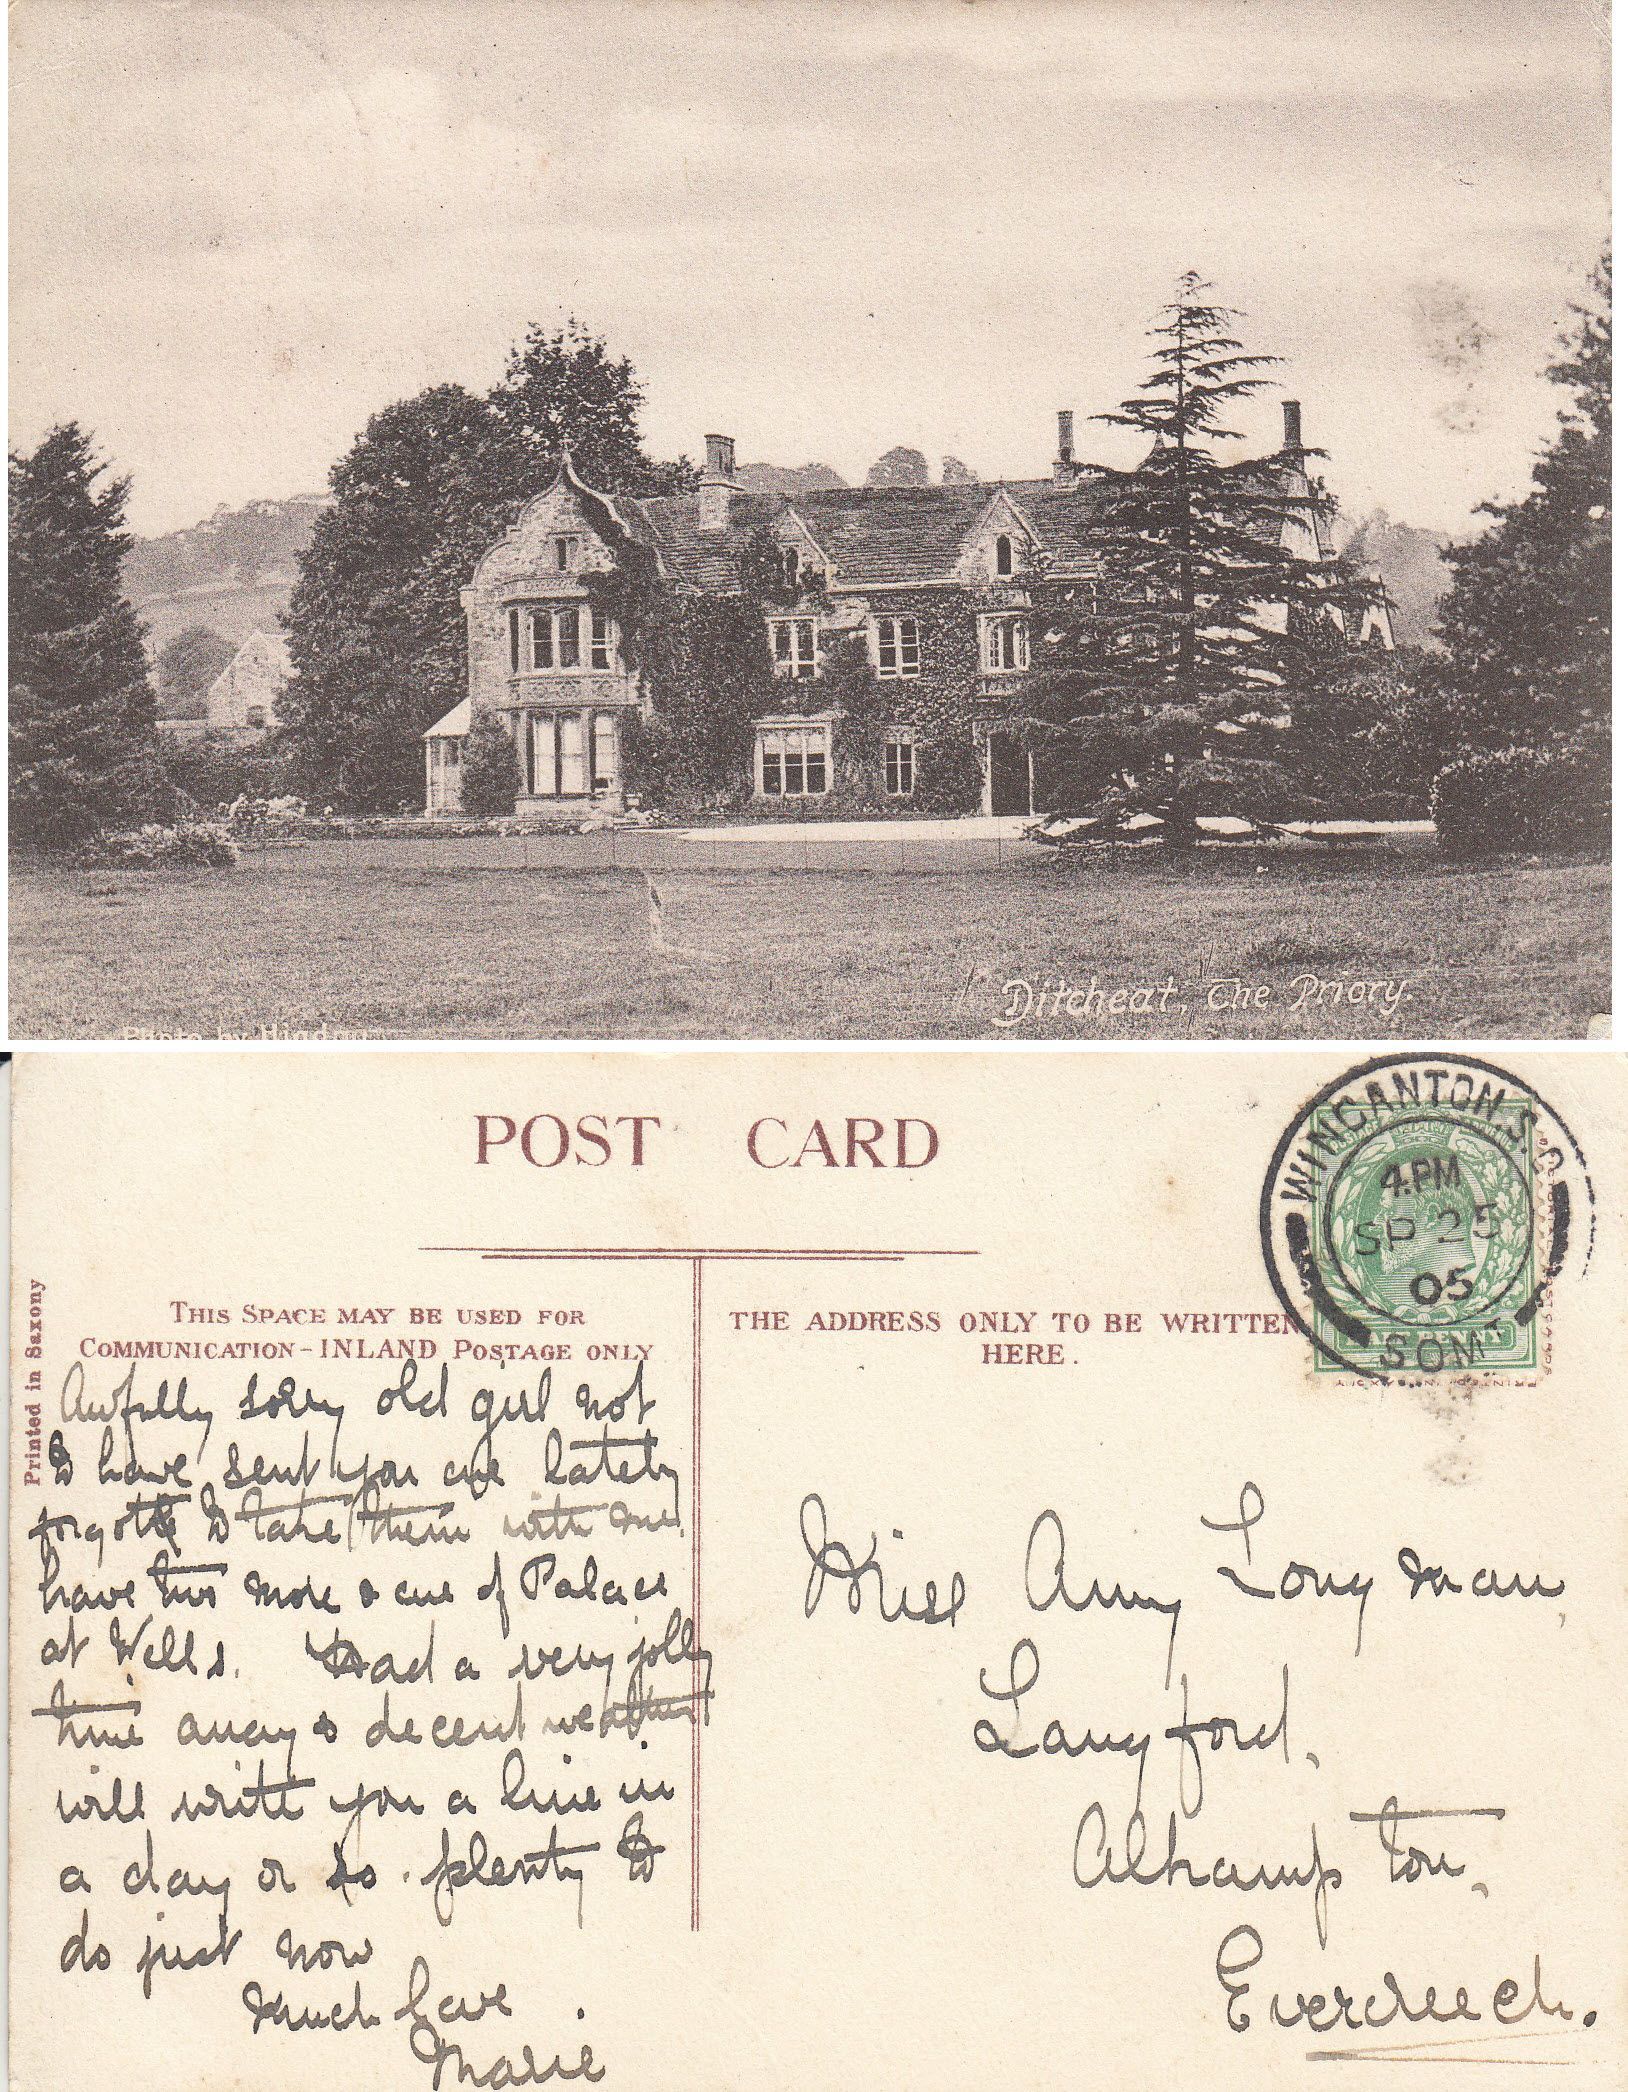 Ditcheat, The Priory.
Photo by Hindon
POST CARD
THIS SPACE MAY BE USED FOR
COMMUNICATION - INLAND POSTAGE ONLY
THE ADDRESS ONLY TO BE WRITTEN
HERE.
Printed in Saxony
WINCANTON. S.O.
4.PM
SP 25
05
SOMT
Awfully sorry old girl not
to have sent you one lately
forgotte to take them with me.
have two more & one of Palace
at Wells. Had a very jolly
time away & decent weather
will write you a line in
a day or so. plenty to
do just now
Much Love.
Marie
Miss Amy Longman,
Langford,
Alhampton,
Evercreech.